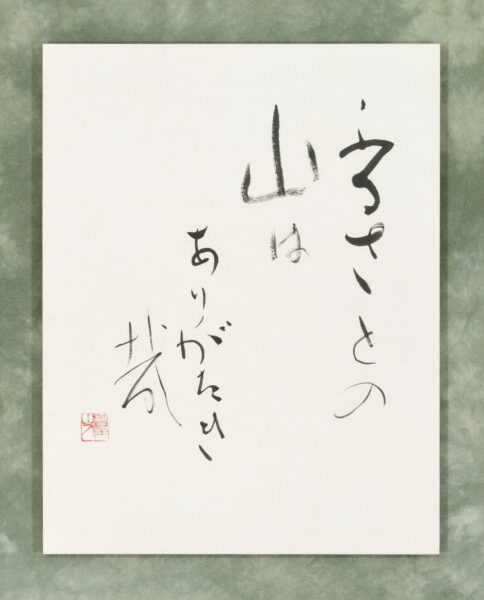 ふるさとの
山は
ありがたき
哉